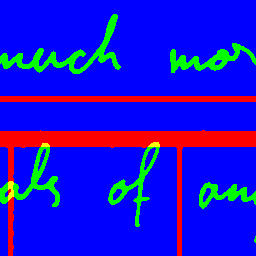 much mor
als of an